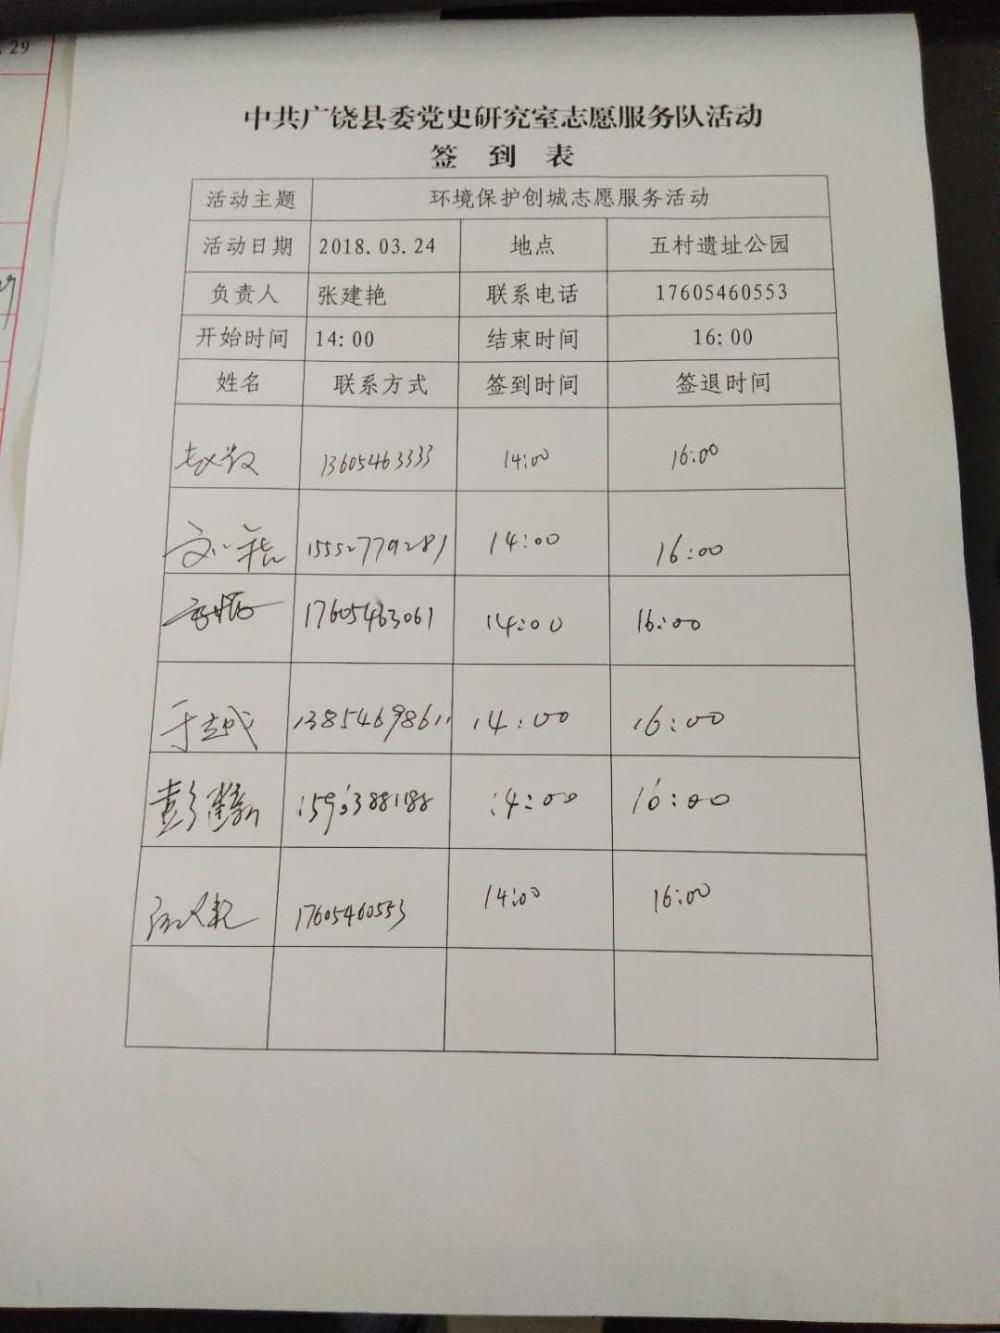 .29
中共广饶县委党史研究室志愿服务队活动
签 到 表
活动主题 环境保护创城志愿服务活动
活动日期 2018.03.24 地点 五村遗址公园
负责人 张建艳 联系电话 17605460553
开始时间 14:00 结束时间 16:00
姓名 联系方式 签到时间 签退时间
13605463333 14:00 16:00
15552779281 14:00 16:00
17605463061 14:00 16:00
于越 13854698611 14:00 16:00
彭建新 14:00 16:00
17605460553 14:00 16:00